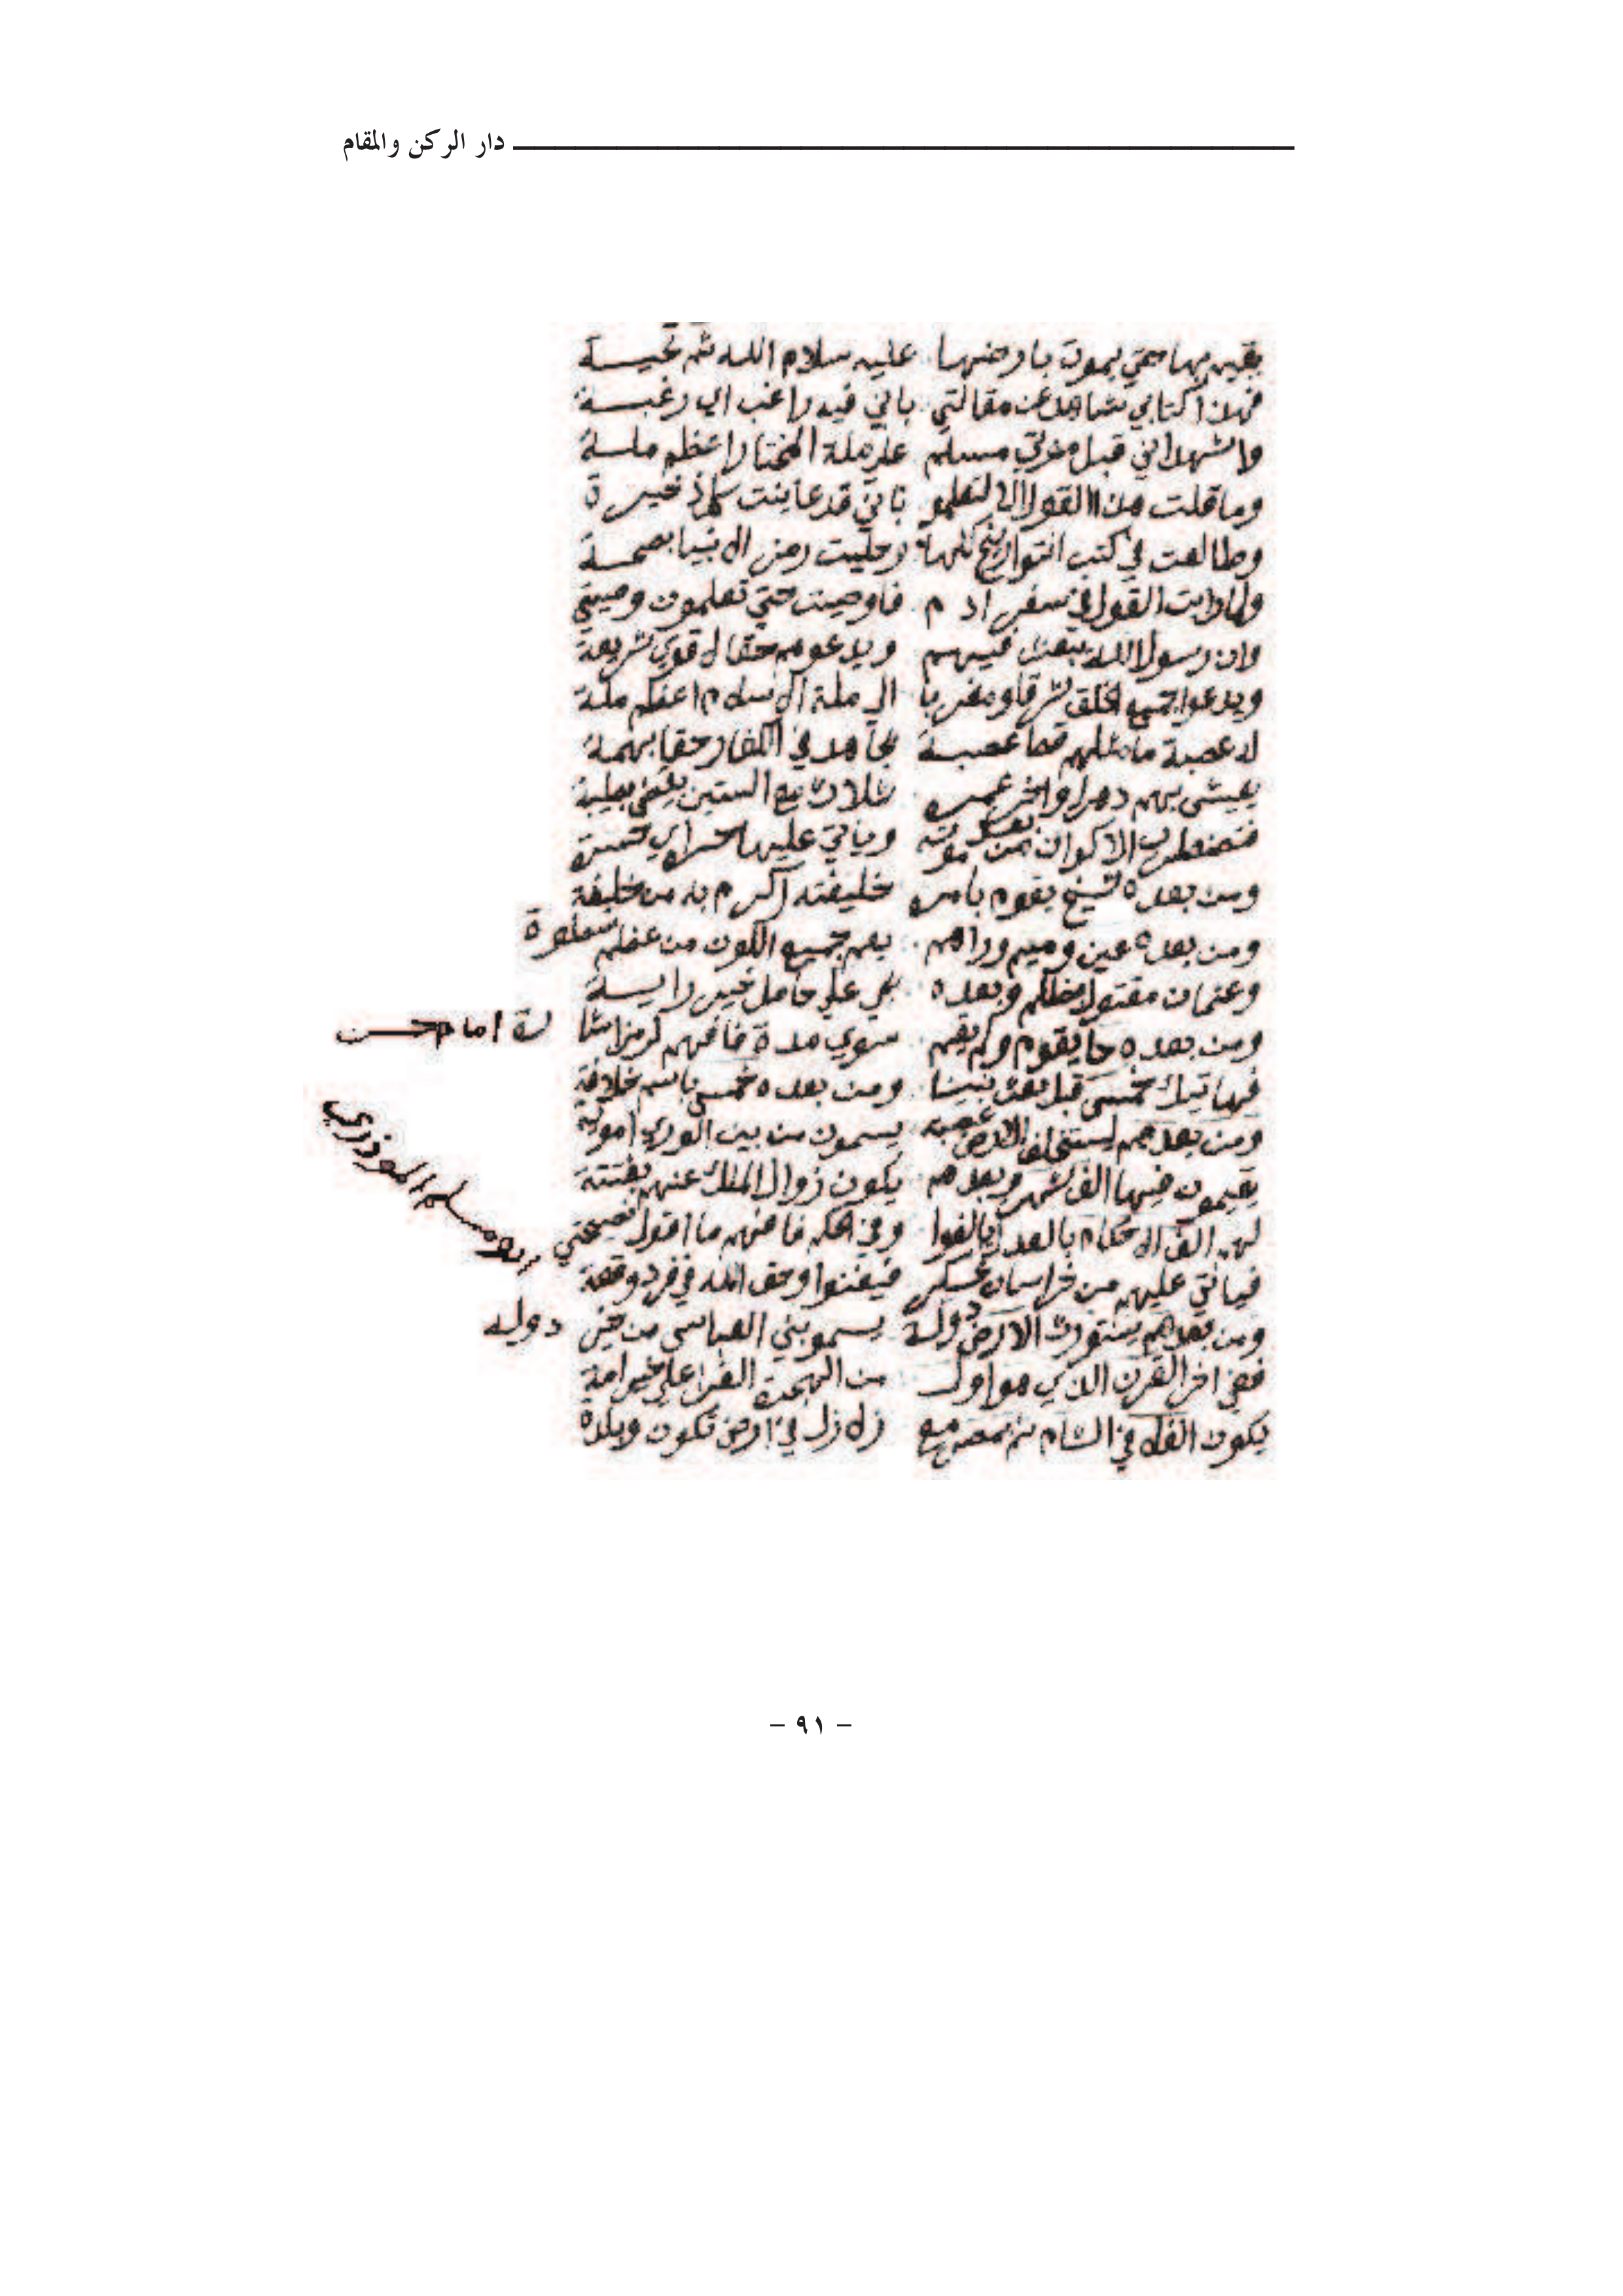 دار الركن والمقام
يقيم بها حتي يموت بارضها عليه سلام الله ثم تحيـــة
فهذا كتابي شاهد عن مقالتي باني فيه راغب اي رغبـــة
واشهد اني قبل موتي مسلم علي ملة المختار اعظم ملـــة
وما قلت هذا القول الا لتعلمو باني قد عاينت كل
وطالعت في كتب التواريخ كلها وحليت رمز الانبيا بصحـــة
ولما رايت القول في سفر ادم فاوصيت حتي تعلمون وصيتي
وان رسول الله يبعث فيهم ويدعوهم حقا لاقوي شريعة
ويدعوا جميع الخلق شرقا ومغربا الي ملة الاسلام اعظم ملة
له عصبة ما مثلهم قط عصبـــة تجاهد في الكفار حقا بهمة
يعيش بهم دهرا واخر عمره ثلاث مع الستين
الاكوان من بعد موته وياتي عليها حسرا اي حسرة
ومن بعده شيخ يقوم بامره خليفته اكرم به من خليفة
ومن بعده عين وميم وراهم يعم جميع الكون من عظم سطوة
وعثمان مقتول بظلم وبعده علي حامل خير رايـــة
ومن بعده حا يقوم ولم يقم سوي مدة فافهم لرمز
امام حسن
خمس قبل بعث نبينا ومن بعده خمس باسم خلافة
ومن بعدهم يستخلف الارض عصبة يسمون من بين الوري اموية
يقيمون فيها الف شهر وبعدهم يكون زوال الملك عنهم بغتتة
لهم الف الاحكام بالعد وفي الحكم فافهم ما اقول نصيحتي
ابو مسلم
فياتي عليهم من خراسان عسكر فيفنوا وحق الله في فرد وقعة
ومن بعدهم يستورث الارض دولة يسمو بني العباس من خير دوله
ففي اخر القرن الذي هو اول من الهجرة الغرا علي خير امة
يكون الغلا في الشام ثم بمصر مع زلازل في ارض تكون وبلدة
- ٩١ -